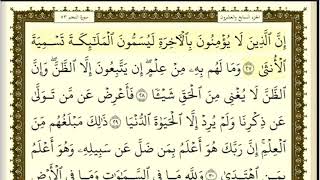 سورة النجم ٥٣
الجزء السابع والعشرون
إِنَّ الَّذِينَ لَا يُؤْمِنُونَ بِالْآخِرَةِ لَيُسَمُّونَ الْمَلَائِكَةَ تَسْمِيَةَ
الْأُنثَىٰ ٢٧ وَمَا لَهُم بِهِ مِنْ عِلْمٍ إِن يَتَّبِعُونَ إِلَّا الظَّنَّ وَإِنَّ
الظَّنَّ لَا يُغْنِي مِنَ الْحَقِّ شَيْئًا ٢٨ فَأَعْرِضْ عَن مَّن تَوَلَّىٰ
عَن ذِكْرِنَا وَلَمْ يُرِدْ إِلَّا الْحَيَاةَ الدُّنْيَا ٢٩ ذَٰلِكَ مَبْلَغُهُم مِّنَ
الْعِلْمِ إِنَّ رَبَّكَ هُوَ أَعْلَمُ بِمَن ضَلَّ عَن سَبِيلِهِ وَهُوَ أَعْلَمُ
بِمَنِ اهْتَدَىٰ ٣٠ وَلِلَّهِ مَا فِي السَّمَاوَاتِ وَمَا فِي الْأَرْضِ